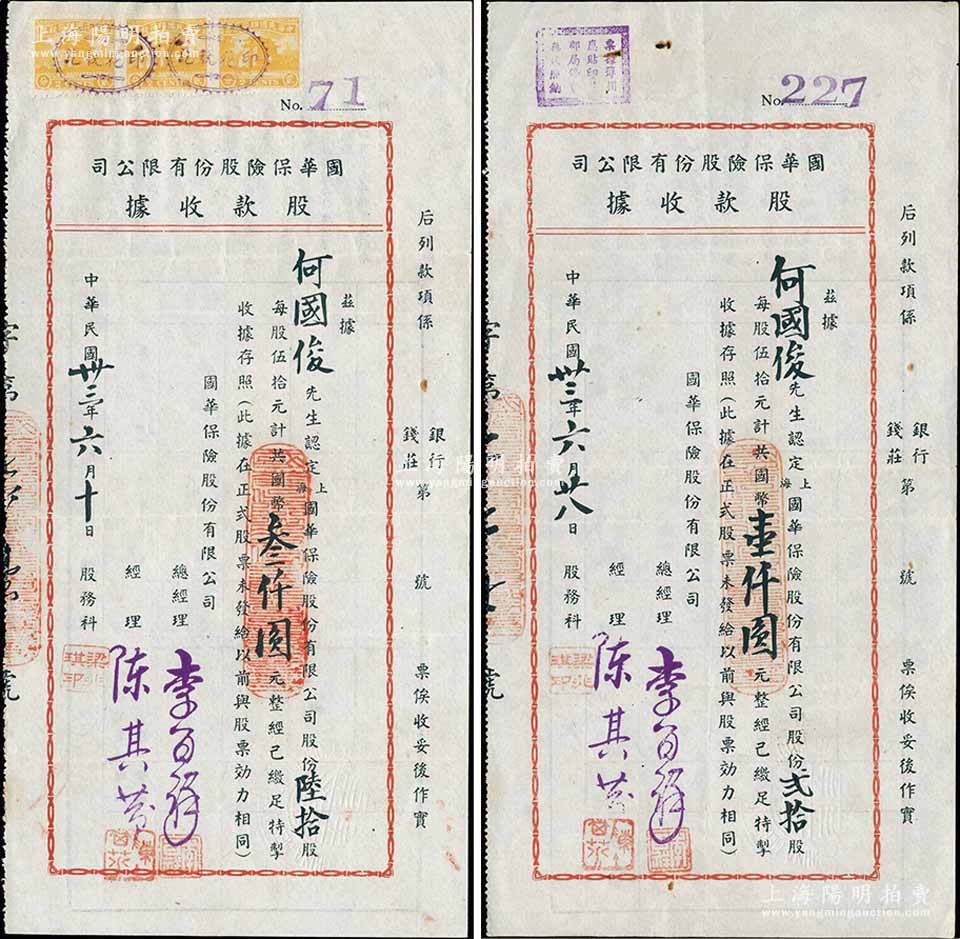 上海陽明拍賣
www.yangmingauction.com
No. 71
國華保險股份有限公司
股款收據
后列款項係 銀行錢莊第 號 票俟收妥後作實
茲據
何國俊先生認定上海國華保險股份有限公司股份陸拾股
每股伍拾元計共國幣叁仟圓元整經已繳足特掣
收據存照(此據在正式股票未發給以前與股票効力相同)
國華保險股份有限公司
總經理 李百祥
經理 陳其芬
股務科
中華民國卅三年六月十日
No. 227
國華保險股份有限公司
股款收據
后列款項係 銀行錢莊第 號 票俟收妥後作實
茲據
何國俊先生認定上海國華保險股份有限公司股份弍拾股
每股伍拾元計共國幣壹仟圓元整經已繳足特掣
收據存照(此據在正式股票未發給以前與股票効力相同)
國華保險股份有限公司
總經理 李百祥
經理 陳其芬
股務科
中華民國卅三年六月廿八日
上海陽明拍賣
www.yangmingauction.com